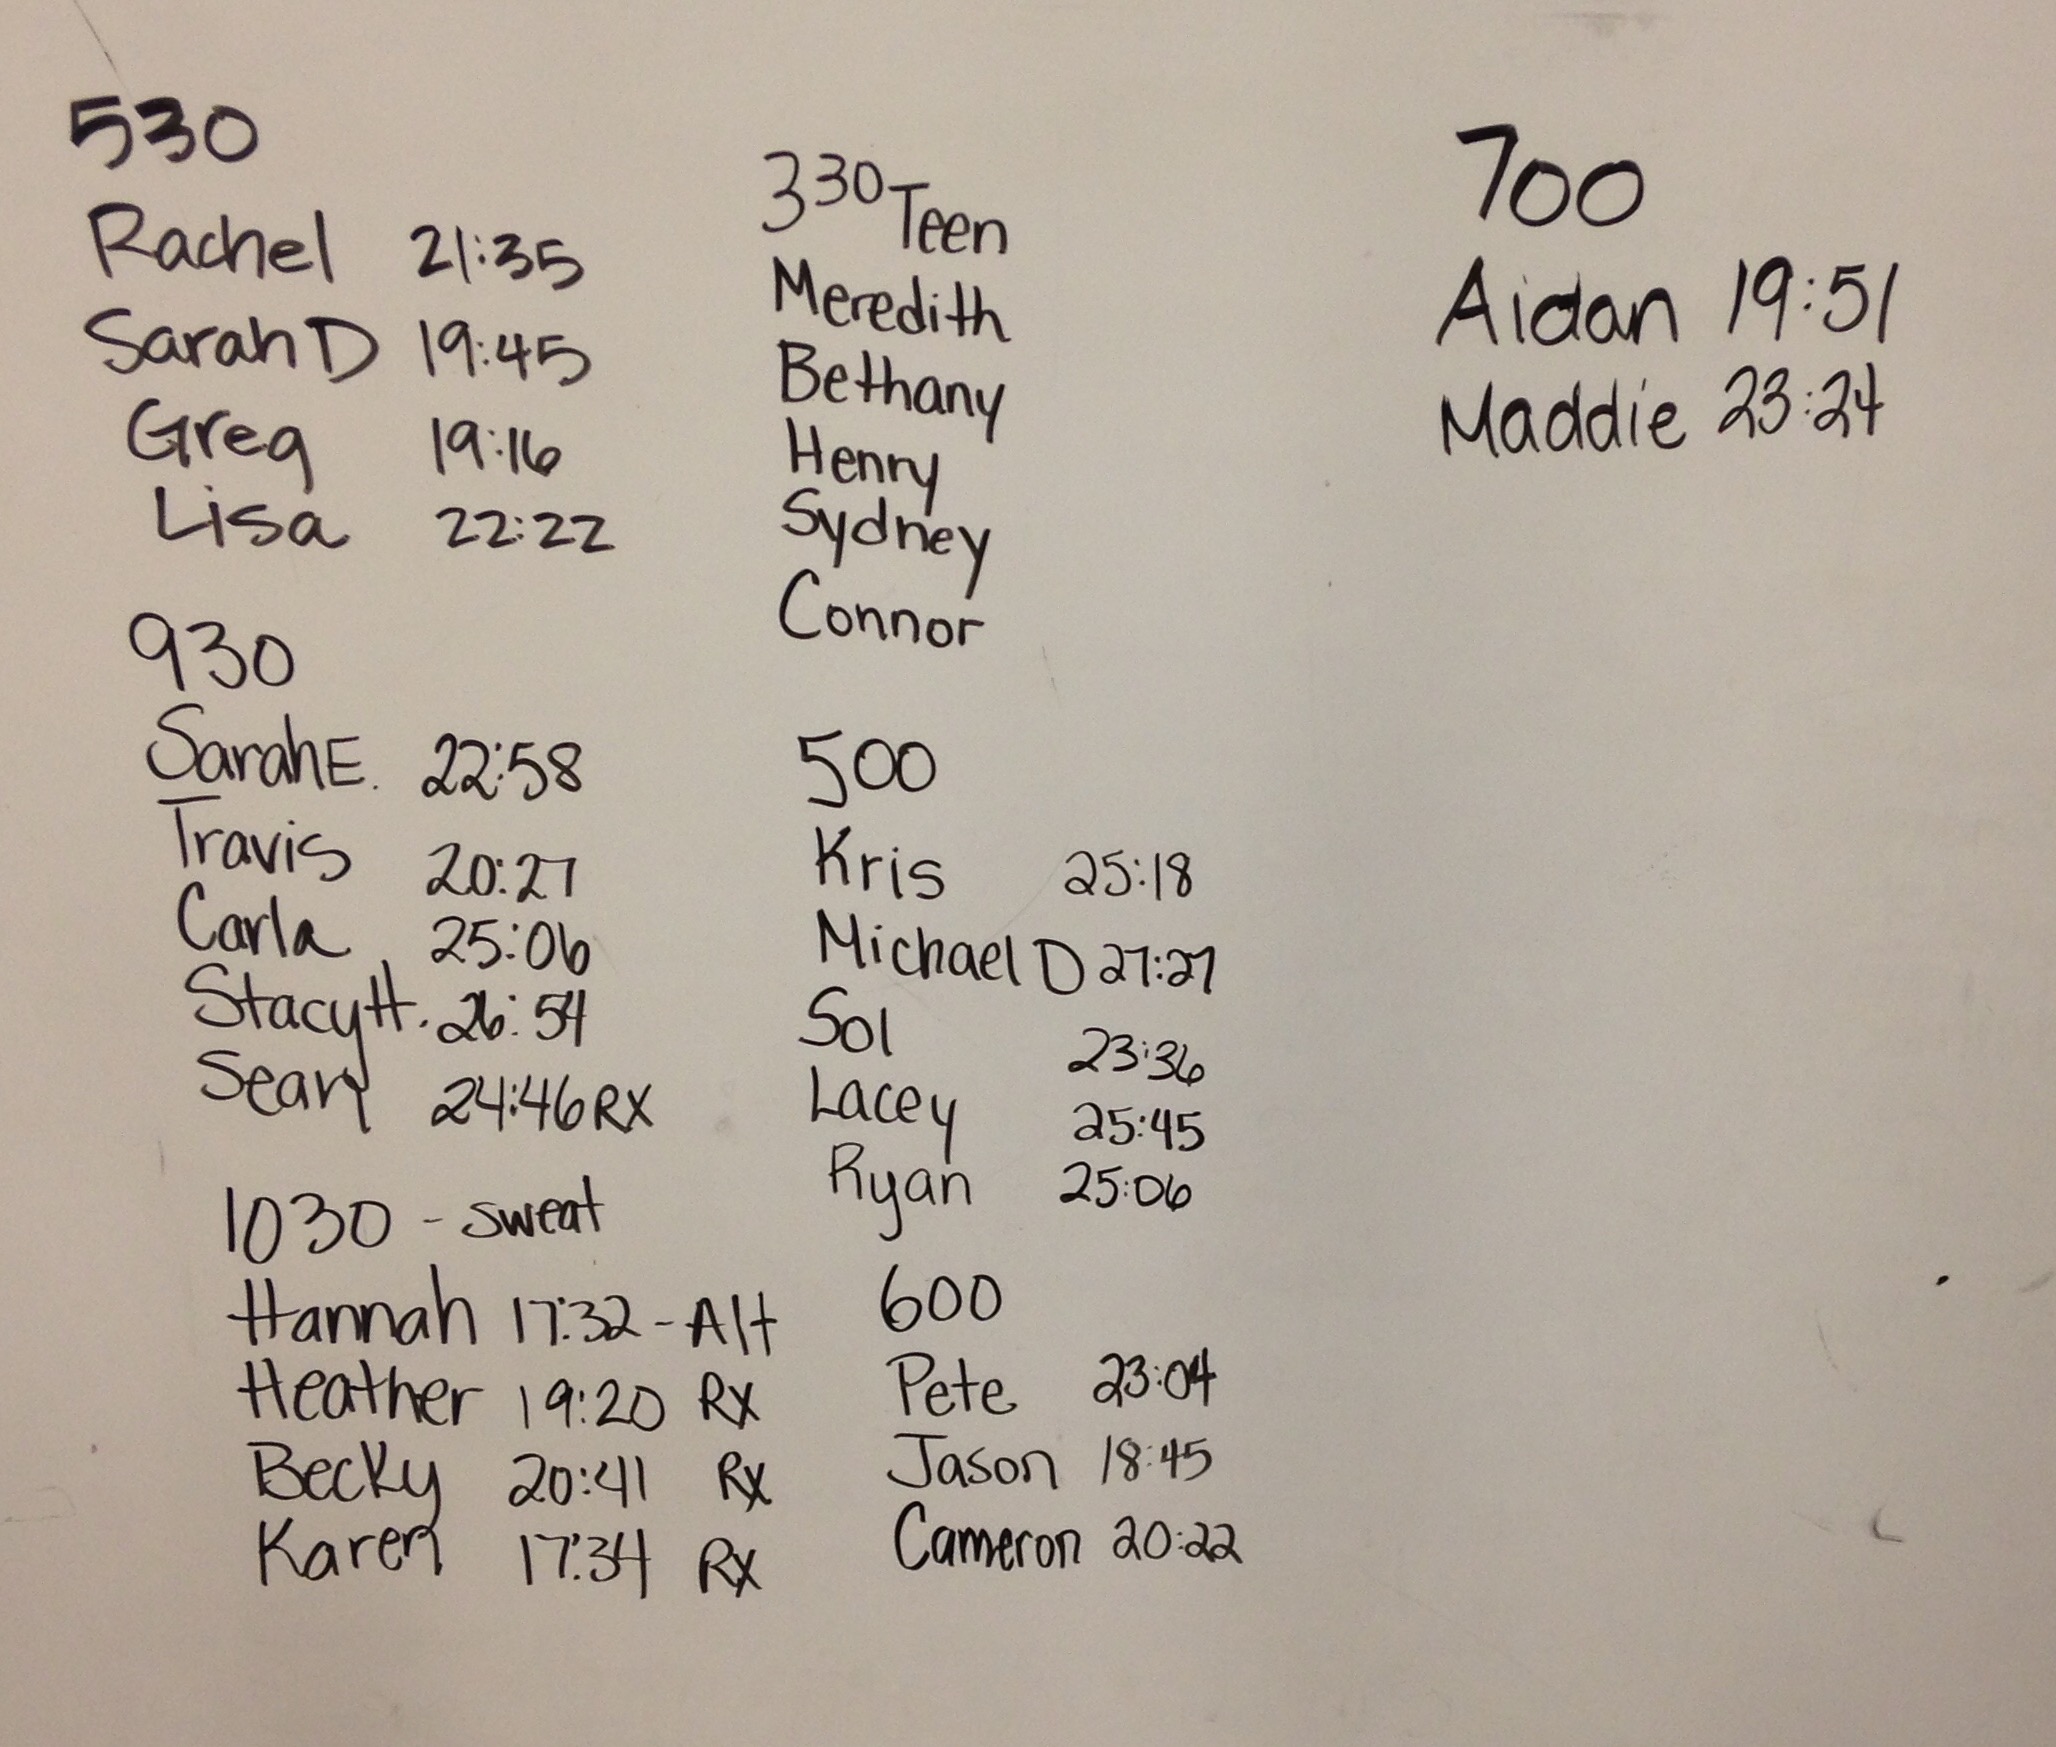 530
Rachel 21:35
Sarah D 19:45
Greg 19:16
Lisa 22:22
930
Sarah E. 22:58
Travis 20:27
Carla 25:06
Stacy H. 26:54
Sean 24:46 RX
1030 - sweat
Hannah 17:32 - Alt
Heather 19:20 RX
Becky 20:41 RX
Karen 17:34 RX
330 Teen
Meredith
Bethany
Henry
Sydney
Connor
500
Kris 25:18
Michael D 27:27
Sol 23:36
Lacey 25:45
Ryan 25:06
600
Pete 23:04
Jason 18:45
Cameron 20:22
700
Aidan 19:51
Maddie 23:24